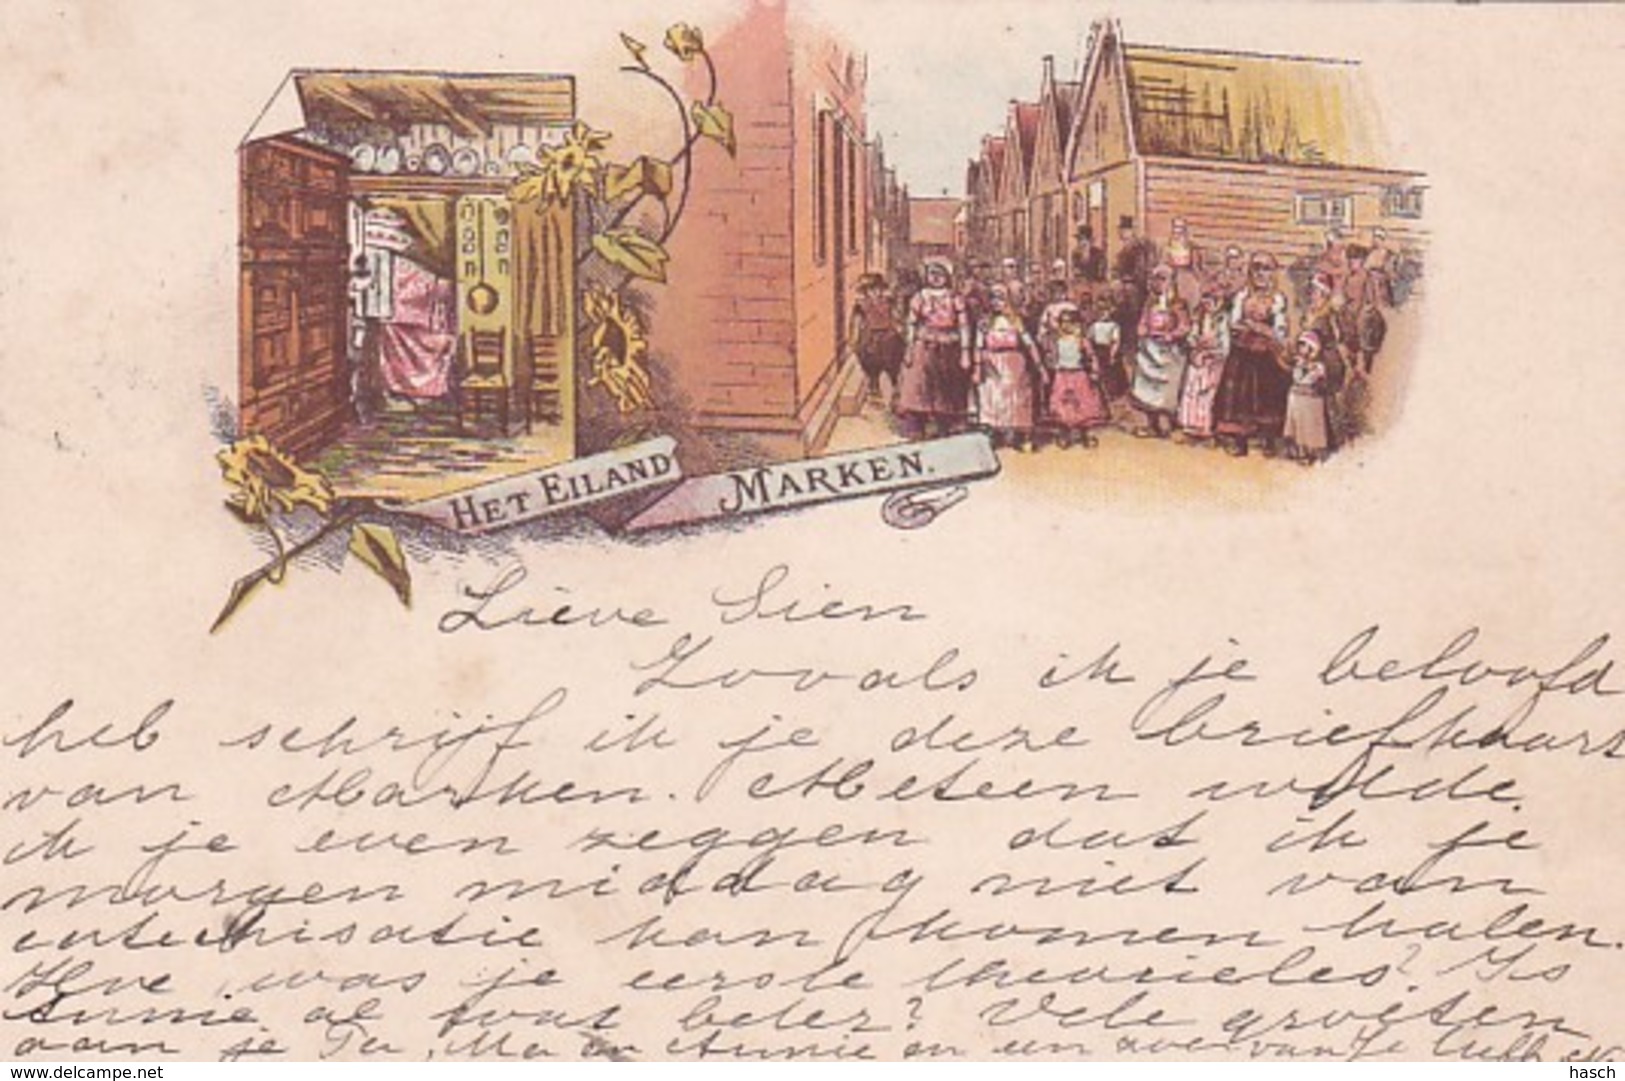 HET EILAND MARKEN.
Lieve Sien
Zooals ik je beloofd
heb schrijf ik je deze briefkaart
van Marken. Meteen wilde
ik je even zeggen dat ik je
morgen middag niet van
catechisatie kan komen halen.
Hoe was je eerste theorieles? Is
Annie al wat beter? Vele groeten
aan je Pa, Ma en Annie en een
www.delcampe.net
hasch